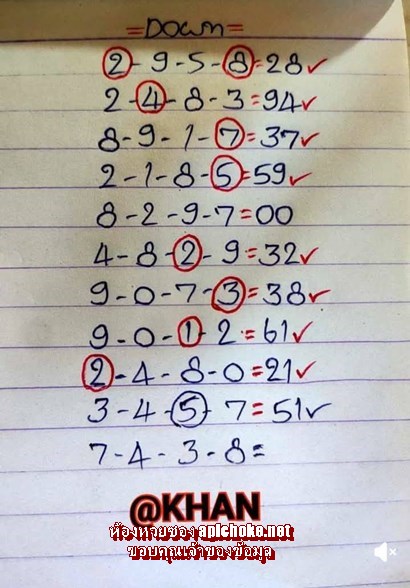 =Down=
2-9-5-8=28✓
2-4-8-3=94✓
8-9-1-7=37✓
2-1-8-5=59✓
8-2-9-7=00
4-8-2-9=32✓
9-0-7-3=38✓
9-0-1-2=61✓
2-4-8-0=21✓
3-4-5-7=51✓
7-4-3-8=
@KHAN
ห้องหวยซอง apichoke.net
ขอบคุณเจ้าของข้อมูล